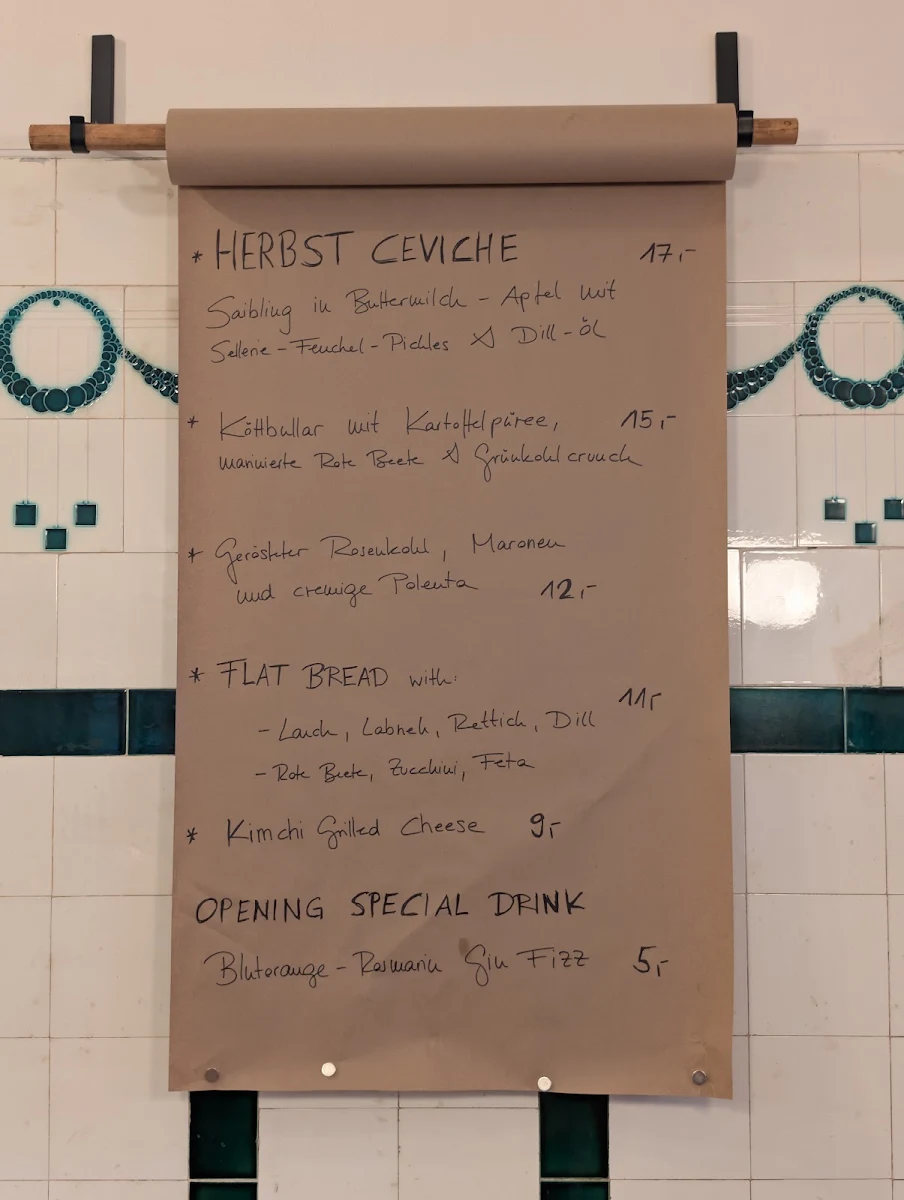 * HERBST CEVICHE 17,-
Saibling in Buttermilch - Apfel mit
Sellerie - Fenchel - Pickles & Dill-Öl
* Köttbullar mit Kartoffelpüree, 15,-
marinierte Rote Beete & Grünkohl crunch
* Gerösteter Rosenkohl, Maronen
und cremige Polenta 12,-
* FLAT BREAD with: 11,-
- Lauch, Labneh, Rettich, Dill
- Rote Beete, Zucchini, Feta
* Kimchi Grilled Cheese 9,-
OPENING SPECIAL DRINK
Blutorange - Rosmarin Gin Fizz 5,-